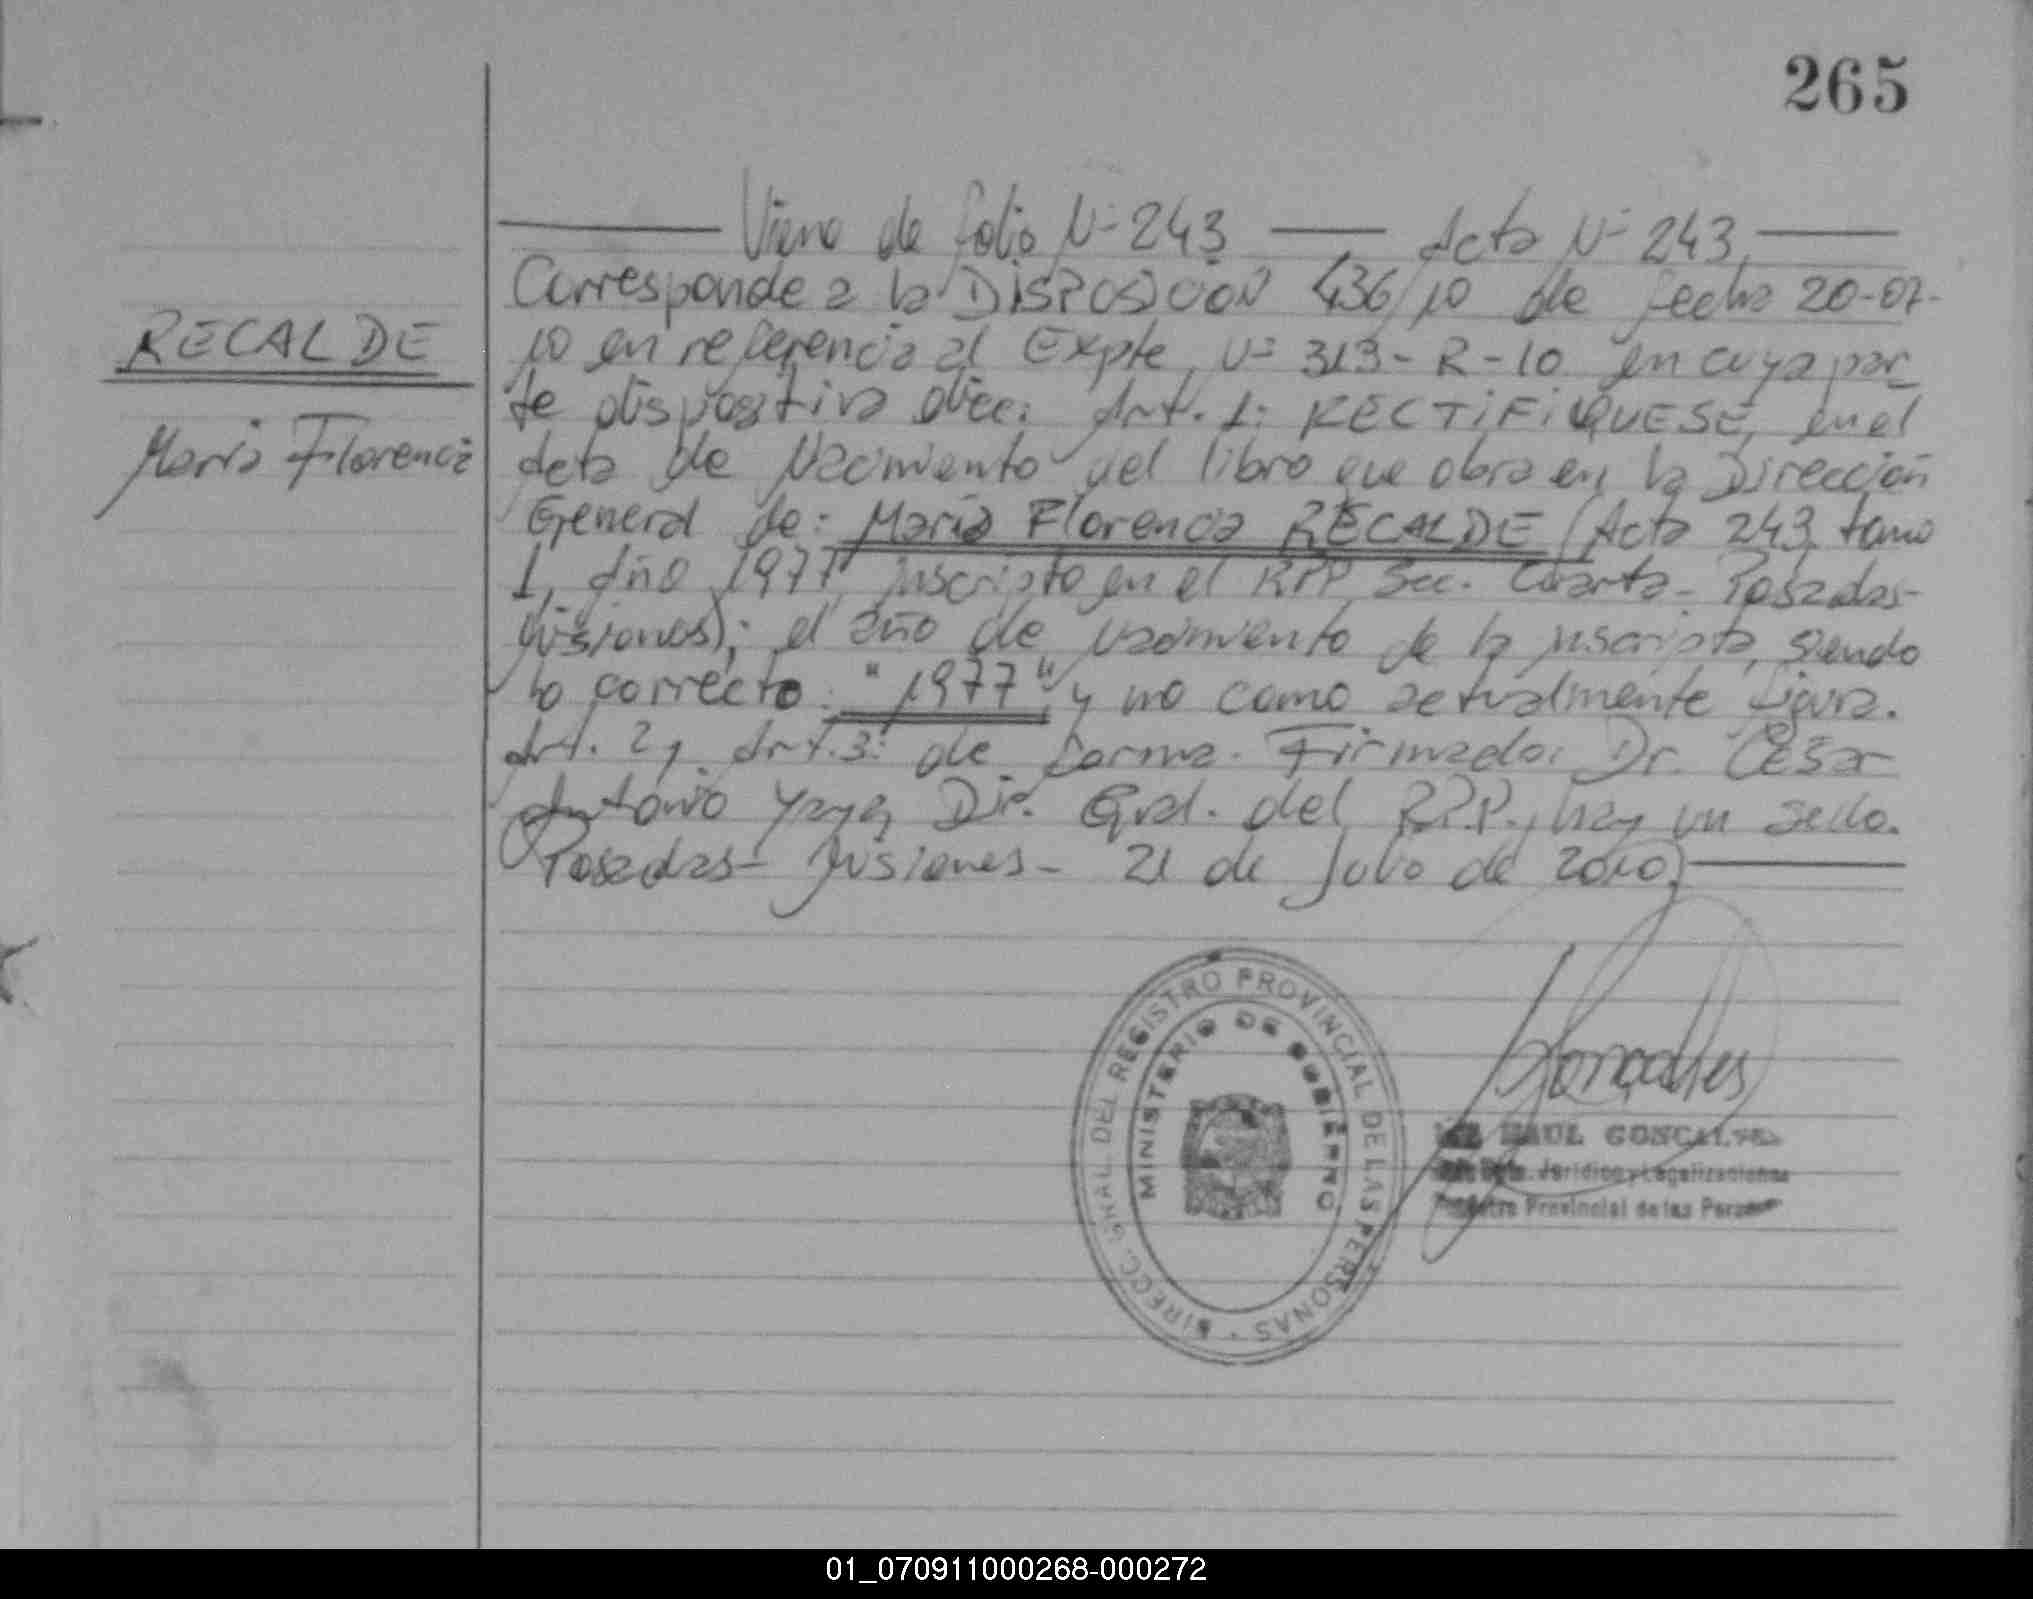 265
Viene de folio Nº 243 Acta Nº 243
Corresponde a la DISPOSICION 436/10 de fecha 20-07-
RECALDE
10 en referencia al Expte Nº 313-R-10 en cuya par_
te dispositiva dice: Art. 1: RECTIFIQUESE, en el
María Florencia
Acta de Nacimiento del libro que obra en la Dirección
General de: María Florencia RECALDE (Acta 243, tomo
1, año 1977 inscripto en el RPP Sec. Cuarta - Posadas-
Misiones); el año de nacimiento de la inscripta, siendo
lo correcto: "1977" y no como actualmente figura.
Art. 2 y Art. 3: de forma. Firmado: Dr. César
Antonio Yaya, Dir. Gral. del R.P.P., hay un sello.
Posadas- Misiones- 21 de Julio de 2010.
DIRECC. GRAL. DEL REGISTRO PROVINCIAL DE LAS PERSONAS
MINISTERIO DE GOBIERNO
Goncalves
RAUL GONCALVES
Dpto. Jurídico y Legalizaciones
Registro Provincial de las Personas
01_070911000268-000272